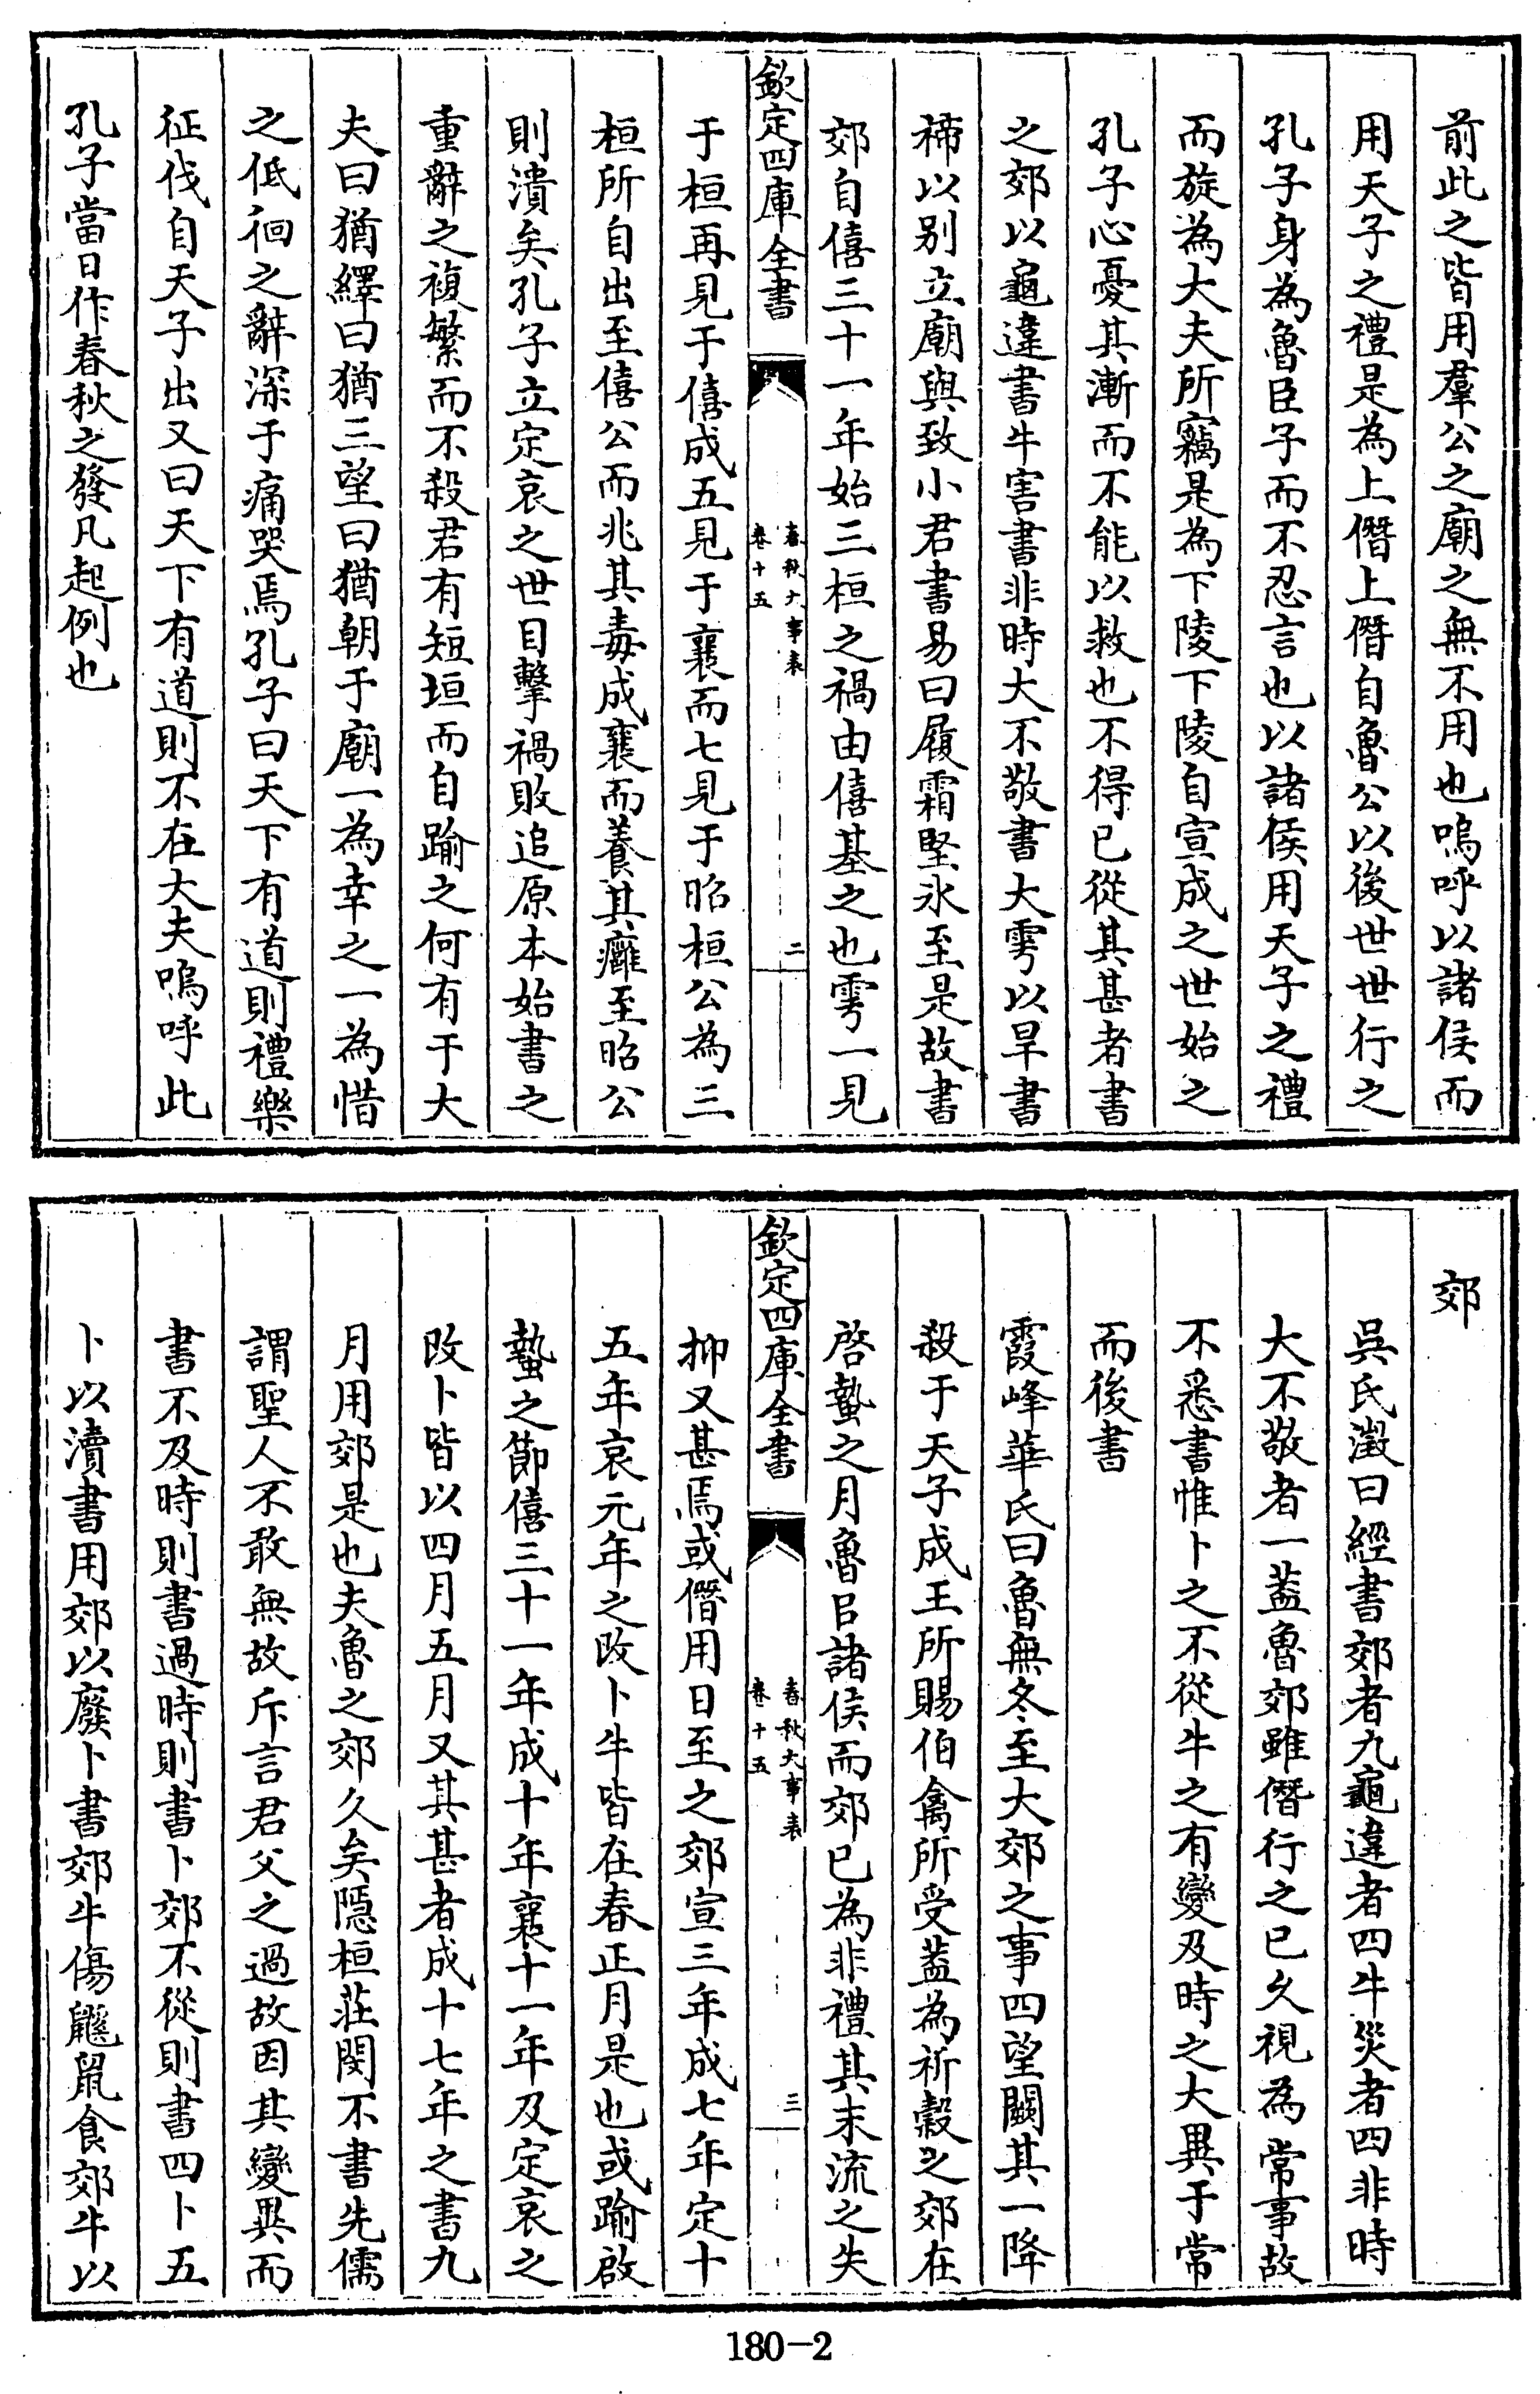 前此之皆用羣公之廟之無不用也嗚呼以諸侯而
用天子之禮是為上僭上僭自魯公以後世世行之
孔子身為魯臣子而不忍言也以諸侯用天子之禮
而旋為大夫所竊是為下陵下陵自宣成之世始之
孔子心憂其漸而不能以救也不得已從其甚者書
之郊以龜違書牛害書非時大不敬書大雩以旱書
禘以别立廟與致小君書易曰履霜堅氷至是故書
郊自僖三十一年始三桓之禍由僖基之也雩一見
欽定四庫全書
春秋大事表
卷十五
二
于桓再見于僖成五見于襄而七見于昭桓公為三
桓所自出至僖公而兆其毒成襄而養其癰至昭公
則潰矣孔子立定哀之世目擊禍敗追原本始書之
重辭之複繁而不殺君有短垣而自踰之何有于大
夫曰猶繹曰猶三望曰猶朝于廟一為幸之一為惜
之低徊之辭深于痛哭焉孔子曰天下有道則禮樂
征伐自天子出又曰天下有道則不在大夫嗚呼此
孔子當日作春秋之發凡起例也
郊
吳氏澂曰經書郊者九龜違者四牛災者四非時
大不敬者一葢魯郊雖僭行之已乆視為常事故
不悉書惟卜之不從牛之有變及時之大異于常
而後書
霞峰華氏曰魯無冬至大郊之事四望闕其一降
殺于天子成王所賜伯禽所受葢為祈穀之郊在
啓蟄之月魯吕諸侯而郊已為非禮其末流之失
欽定四庫全書
春秋大事表
卷十五
三
抑又甚焉或僭用日至之郊宣三年成七年定十
五年哀元年之改卜牛皆在春正月是也或踰啟
蟄之節僖三十一年成十年襄十一年及定哀之
改卜皆以四月五月又其甚者成十七年之書九
月用郊是也夫魯之郊久矣隱桓莊閔不書先儒
謂聖人不敢無故斥言君父之過故因其變異而
書不及時則書過時則書卜郊不從則書四卜五
卜以瀆書用郊以廢卜書郊牛傷鼷鼠食郊牛以
180-2